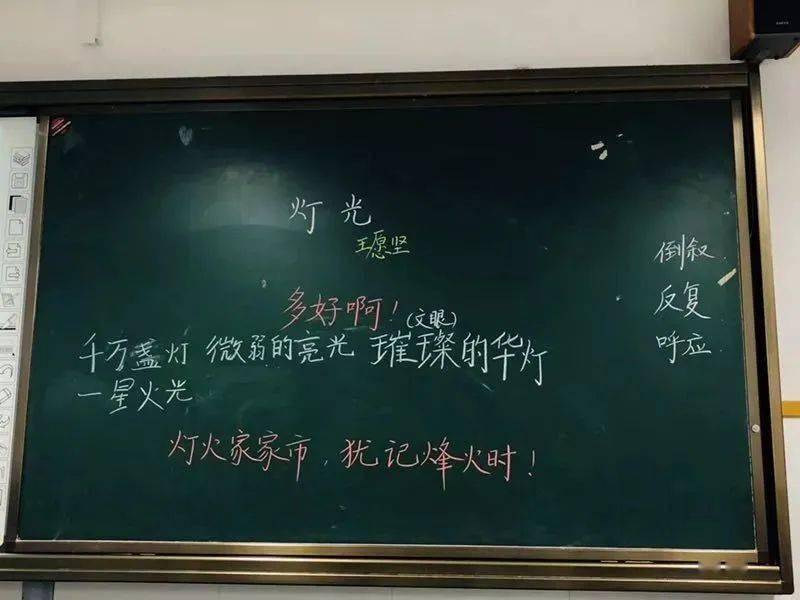 灯光
王愿坚
多好啊！(文眼)
千万盏灯 微弱的亮光 璀璨的华灯
一星火光
灯火家家市，犹记烽火时！
倒叙
反复
呼应